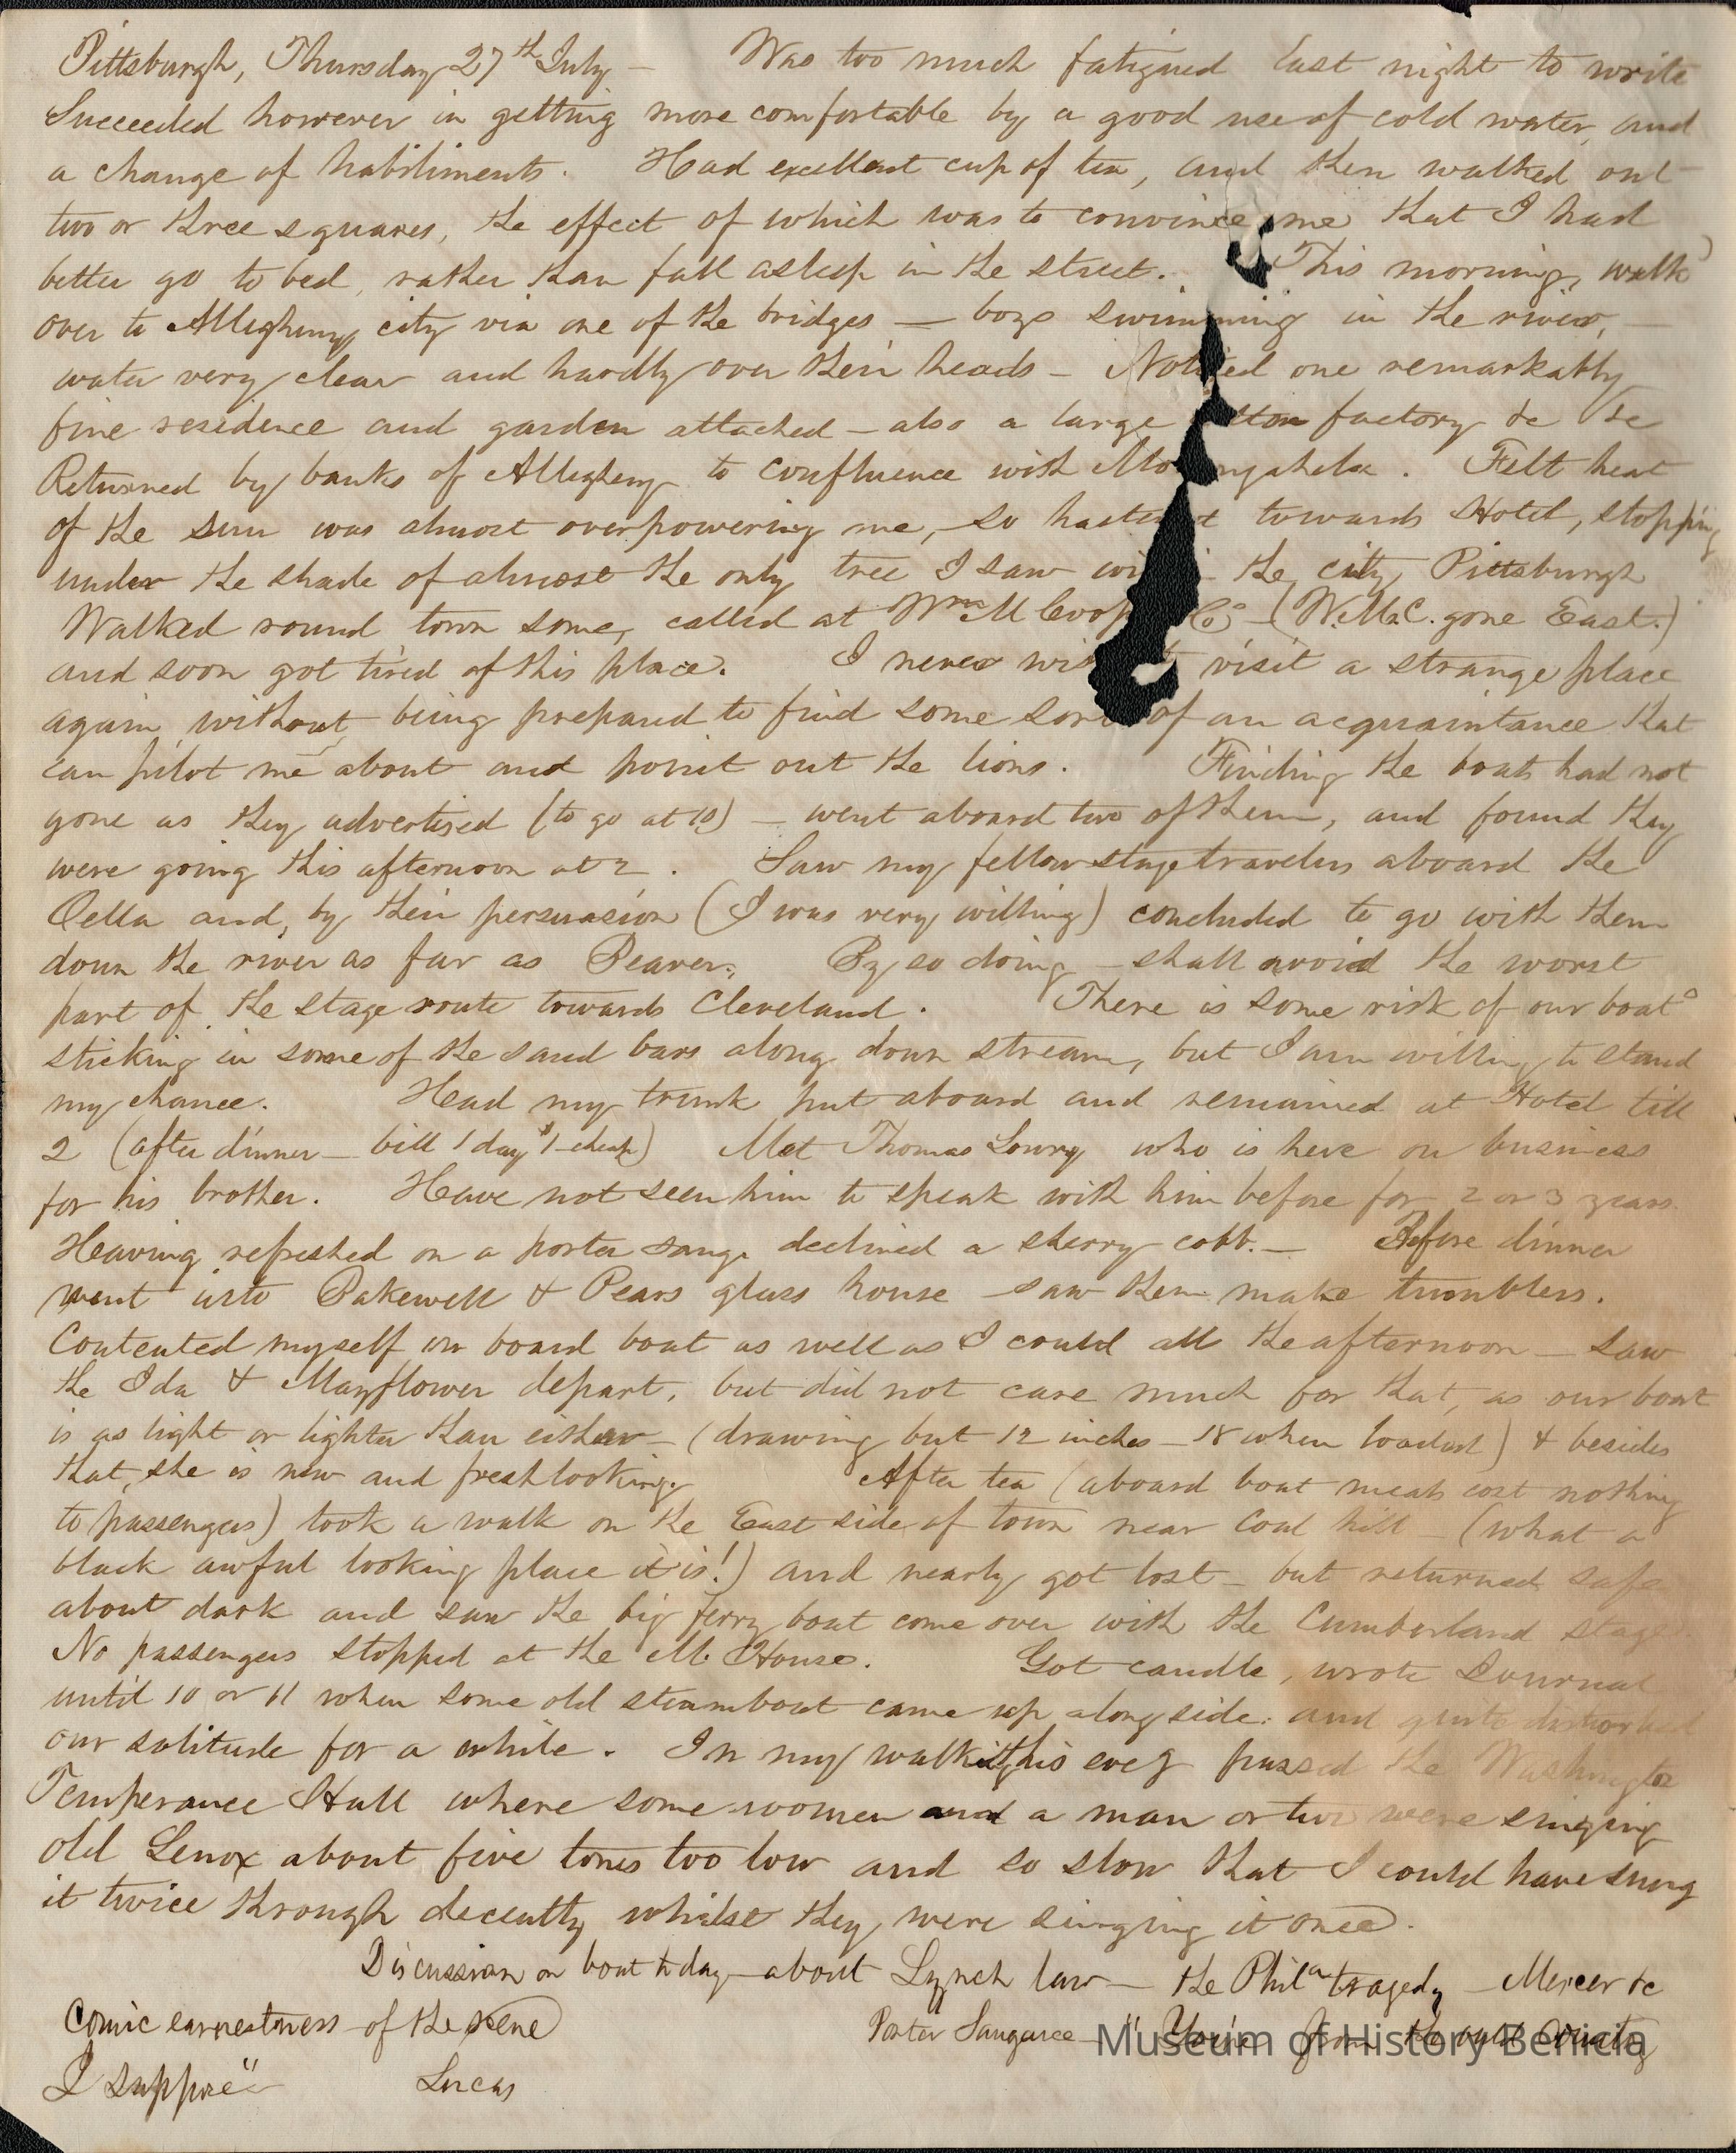 Pittsburgh, Thursday 27th July – Was too much fatigued last night to write
Succeeded however in getting more comfortable by a good use of cold water, and
a change of habiliments. Had excellent cup of tea, and then walked out
two or three squares, the effect of which was to convince me that I had
better go to bed, rather than fall asleep in the street. This morning, walk
over to Allegheny city via one of the bridges — boys swimming in the river, —
water very clear and hardly over their heads – Noticed one remarkably
fine residence and garden attached – also a large tton factory &c &c
Returned by banks of Allegheny to confluence with Mo ngahela. Felt heat
of the sun was almost overpowering me, so haste towards Hotel, stopping
under the shade of almost the only tree I saw wi the city, Pittsburgh
Walked round town some, called at Wm M Coop Co – (W.M.C. gone East.)
and soon got tired of this place. I never wis visit a strange place
again without being prepared to find some sort of an acquaintance that
can pilot me about and point out the lions. Finding the boats had not
gone as they advertised (to go at 10) – went aboard two of them, and found they
were going this afternoon at 2. Saw my fellow stage travelers aboard the
Oella and, by their persuasion (I was very willing) concluded to go with them
down the river as far as Beaver. By so doing – shall avoid the worst
part of the stage route towards Cleveland. There is some risk of our boat
sticking in some of the sand bars along down stream, but I am willing to stand
my chance. Had my trunk put aboard and remained at Hotel till
2 (after dinner – bill 1 day $1 – cheap) Met Thomas Lowry who is here on business
for his brother. Have not seen him to speak with him before for 2 or 3 years.
Having refreshed on a porter sanga declined a sherry cobb. — Before dinner
went into Bakewell & Pears glass house – saw them make tumblers.
Contented myself on board boat as well as I could all the afternoon – saw
the Ida & Mayflower depart, but did not care much for that, as our boat
is as light or lighter than either – (drawing but 12 inches – 18 when loaded) & besides
that, she is new and fresh looking. After tea (aboard boat meals cost nothing
to passengers) took a walk on the East side of town near Coal hill – (what a
black awful looking place it is!) and nearly got lost – but returned safe
about dark and saw the big ferry boat come over with the Cumberland stages.
No passengers stopped at the M. House. Got candle, wrote Journal
until 10 or 11 when some old steamboat came up along side: and quite disturbed
our solitude for a while. In my walk this eveg passed the Washington
Temperance Hall where some women and a man or two were singing
old Lenox about five tones too low and so slow that I could have sung
it twice through decently whilst they were singing it once.
Discussion on boat to day – about Lynch law – the Phila tragedy – Mercer &c
Comic earnestness of the scene Porter Sangaree – "You're from the ould country
I suppose" Lucas
Museum of History Benicia